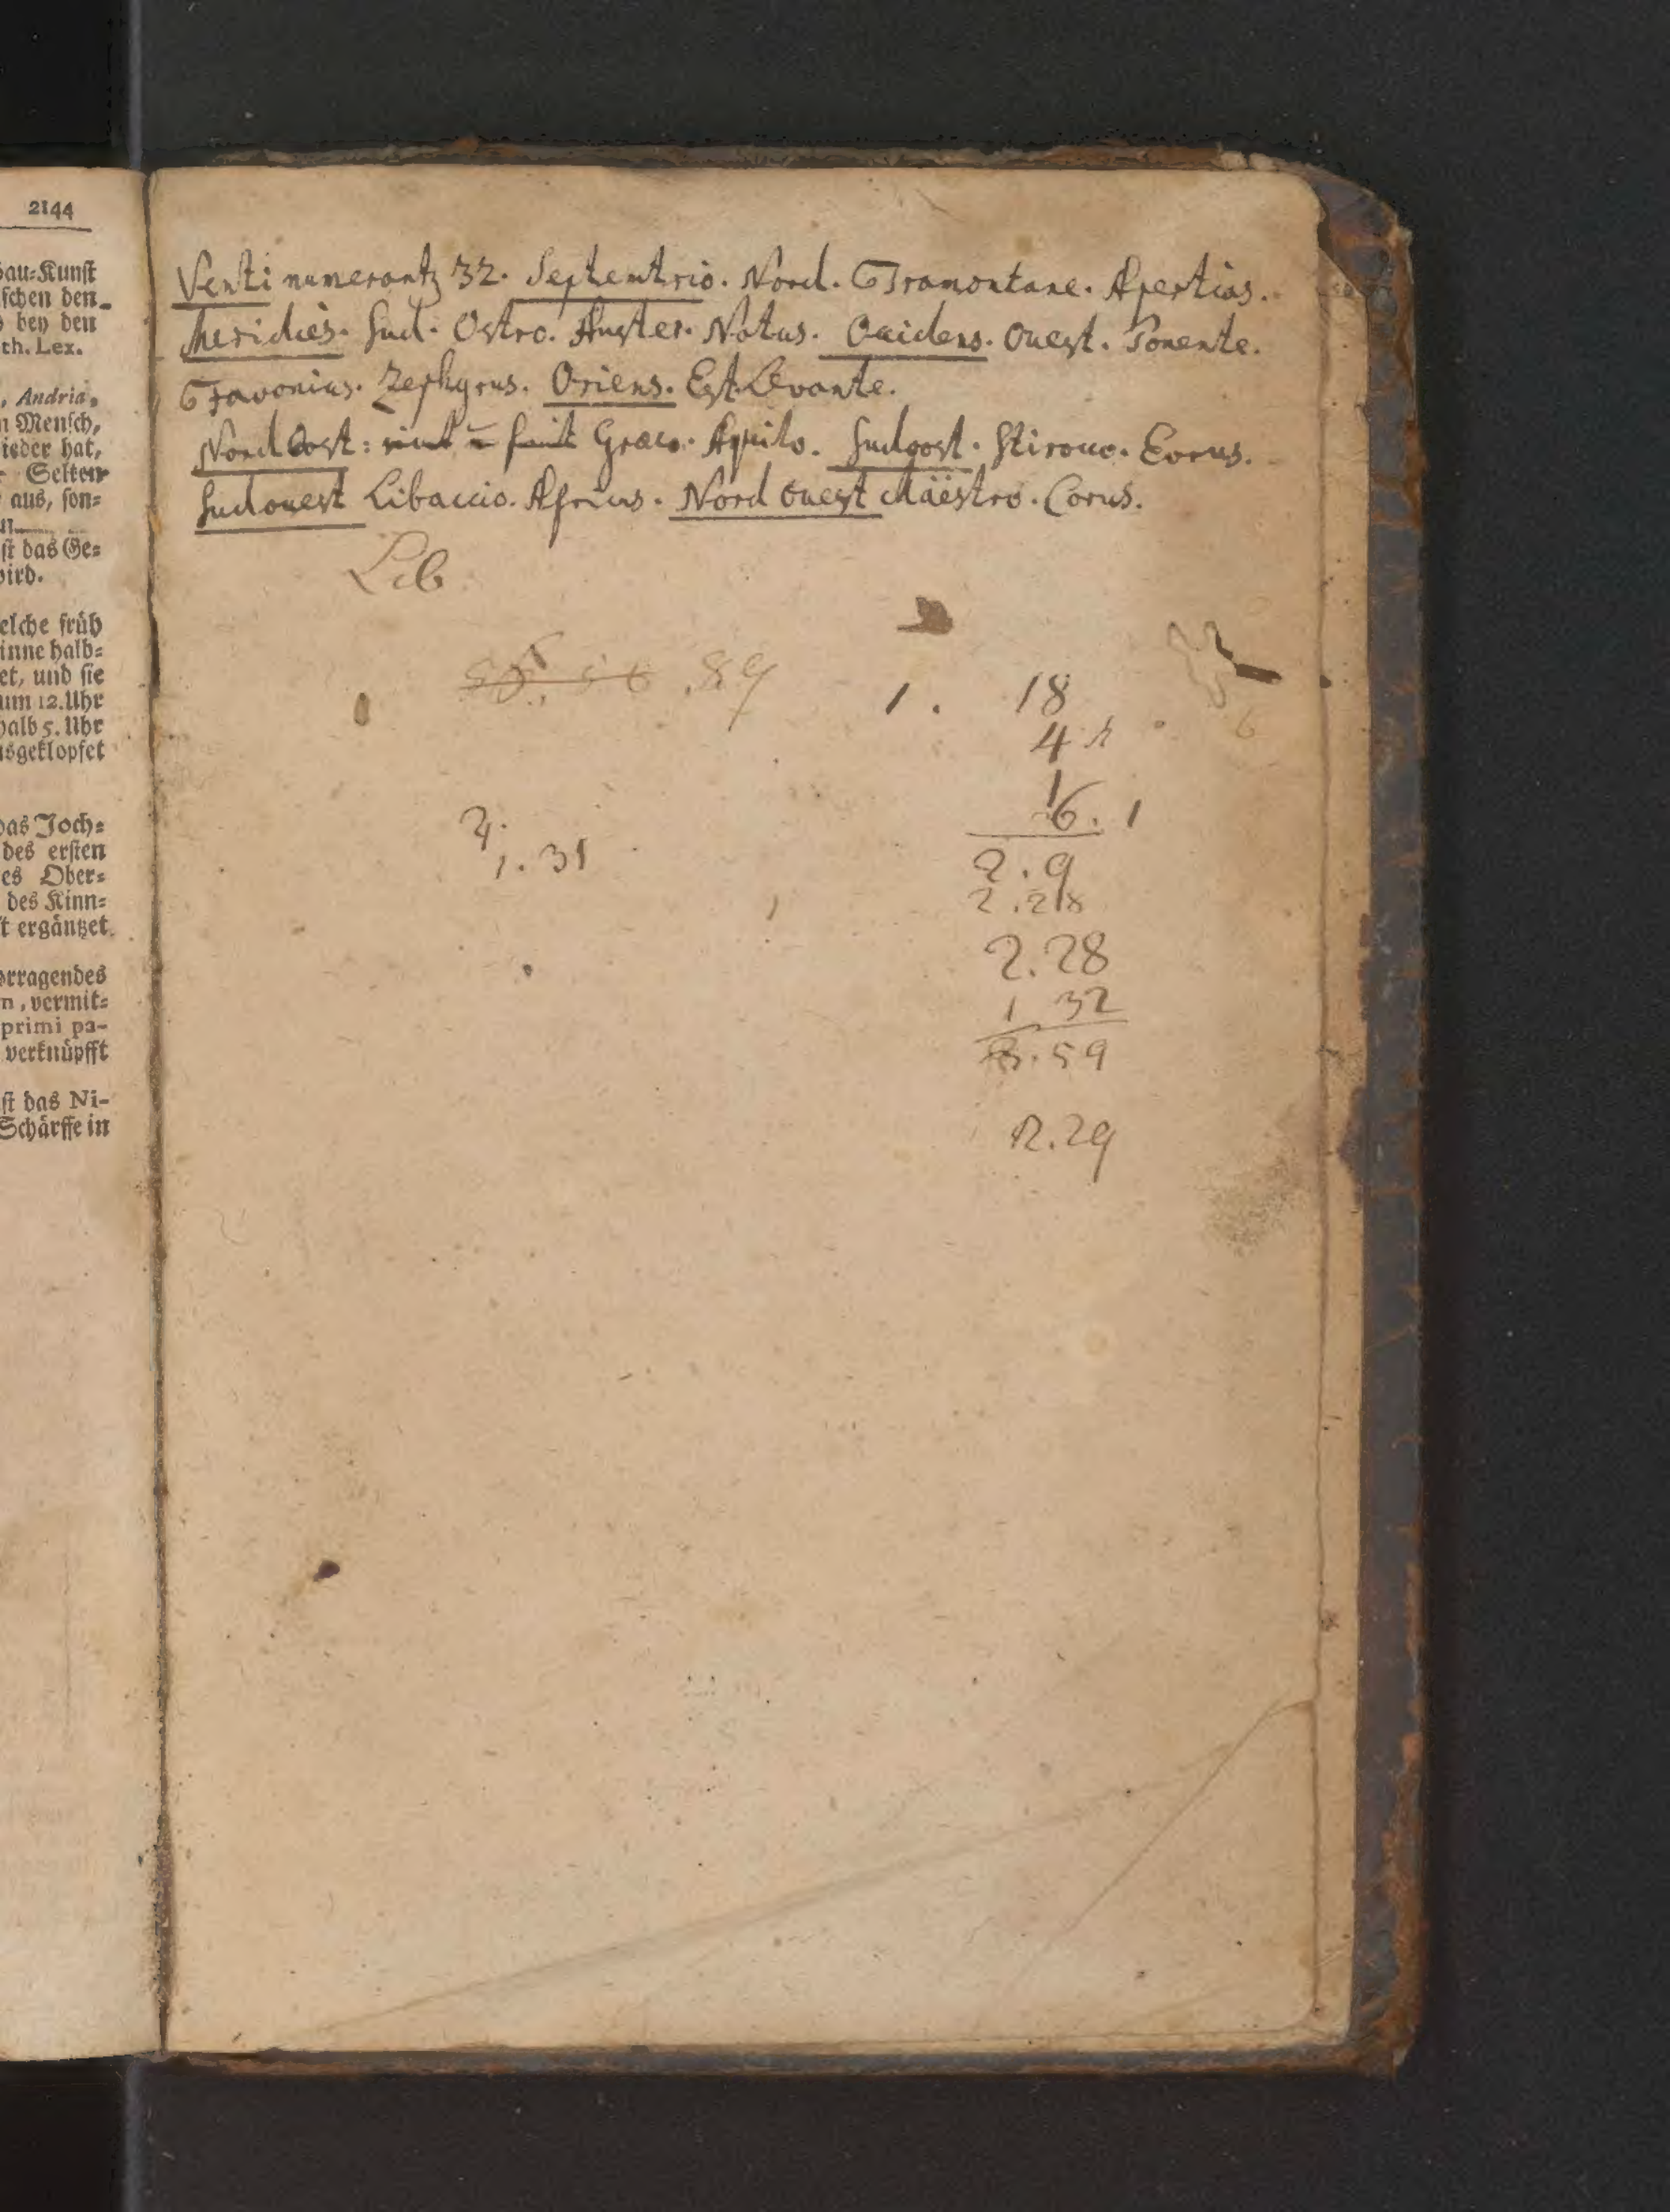 2144
bau-Kunst
schen den
bey den
th. Lex.
, Andria,
Mensch,
ieder hat,
Selten
aus, son-
st das Ge-
wird.
elche früh
inne halb-
et, und sie
um 12. Uhr
halb 5. Uhr
usgeklopfet
das Joch-
des ersten
es Ober-
des Kinn-
t ergäntzet
orragendes
n, vermit-
primi pa-
verknüpfft
st das Ni-
Schärffe in
Venti numerantz 32. Septemtrio. Nord. Tramontane. Apertias.
Meridies. Sud. Ostro. Auster. Notus. Occidens. Ouest. Ponente.
Favonius. Zephyrus. Oriens. Est. Levante.
Nord Oost: Graeco. Aquilo. Sudoost. Stirocco. Eorus.
Sudouest Libaccio. Africus. Nord ouest Maëstro. Corus.
Lib
89
1. 18
4
16. 1
1. 31
2. 9
2. 28
2. 28
1 32
3. 59
2. 29